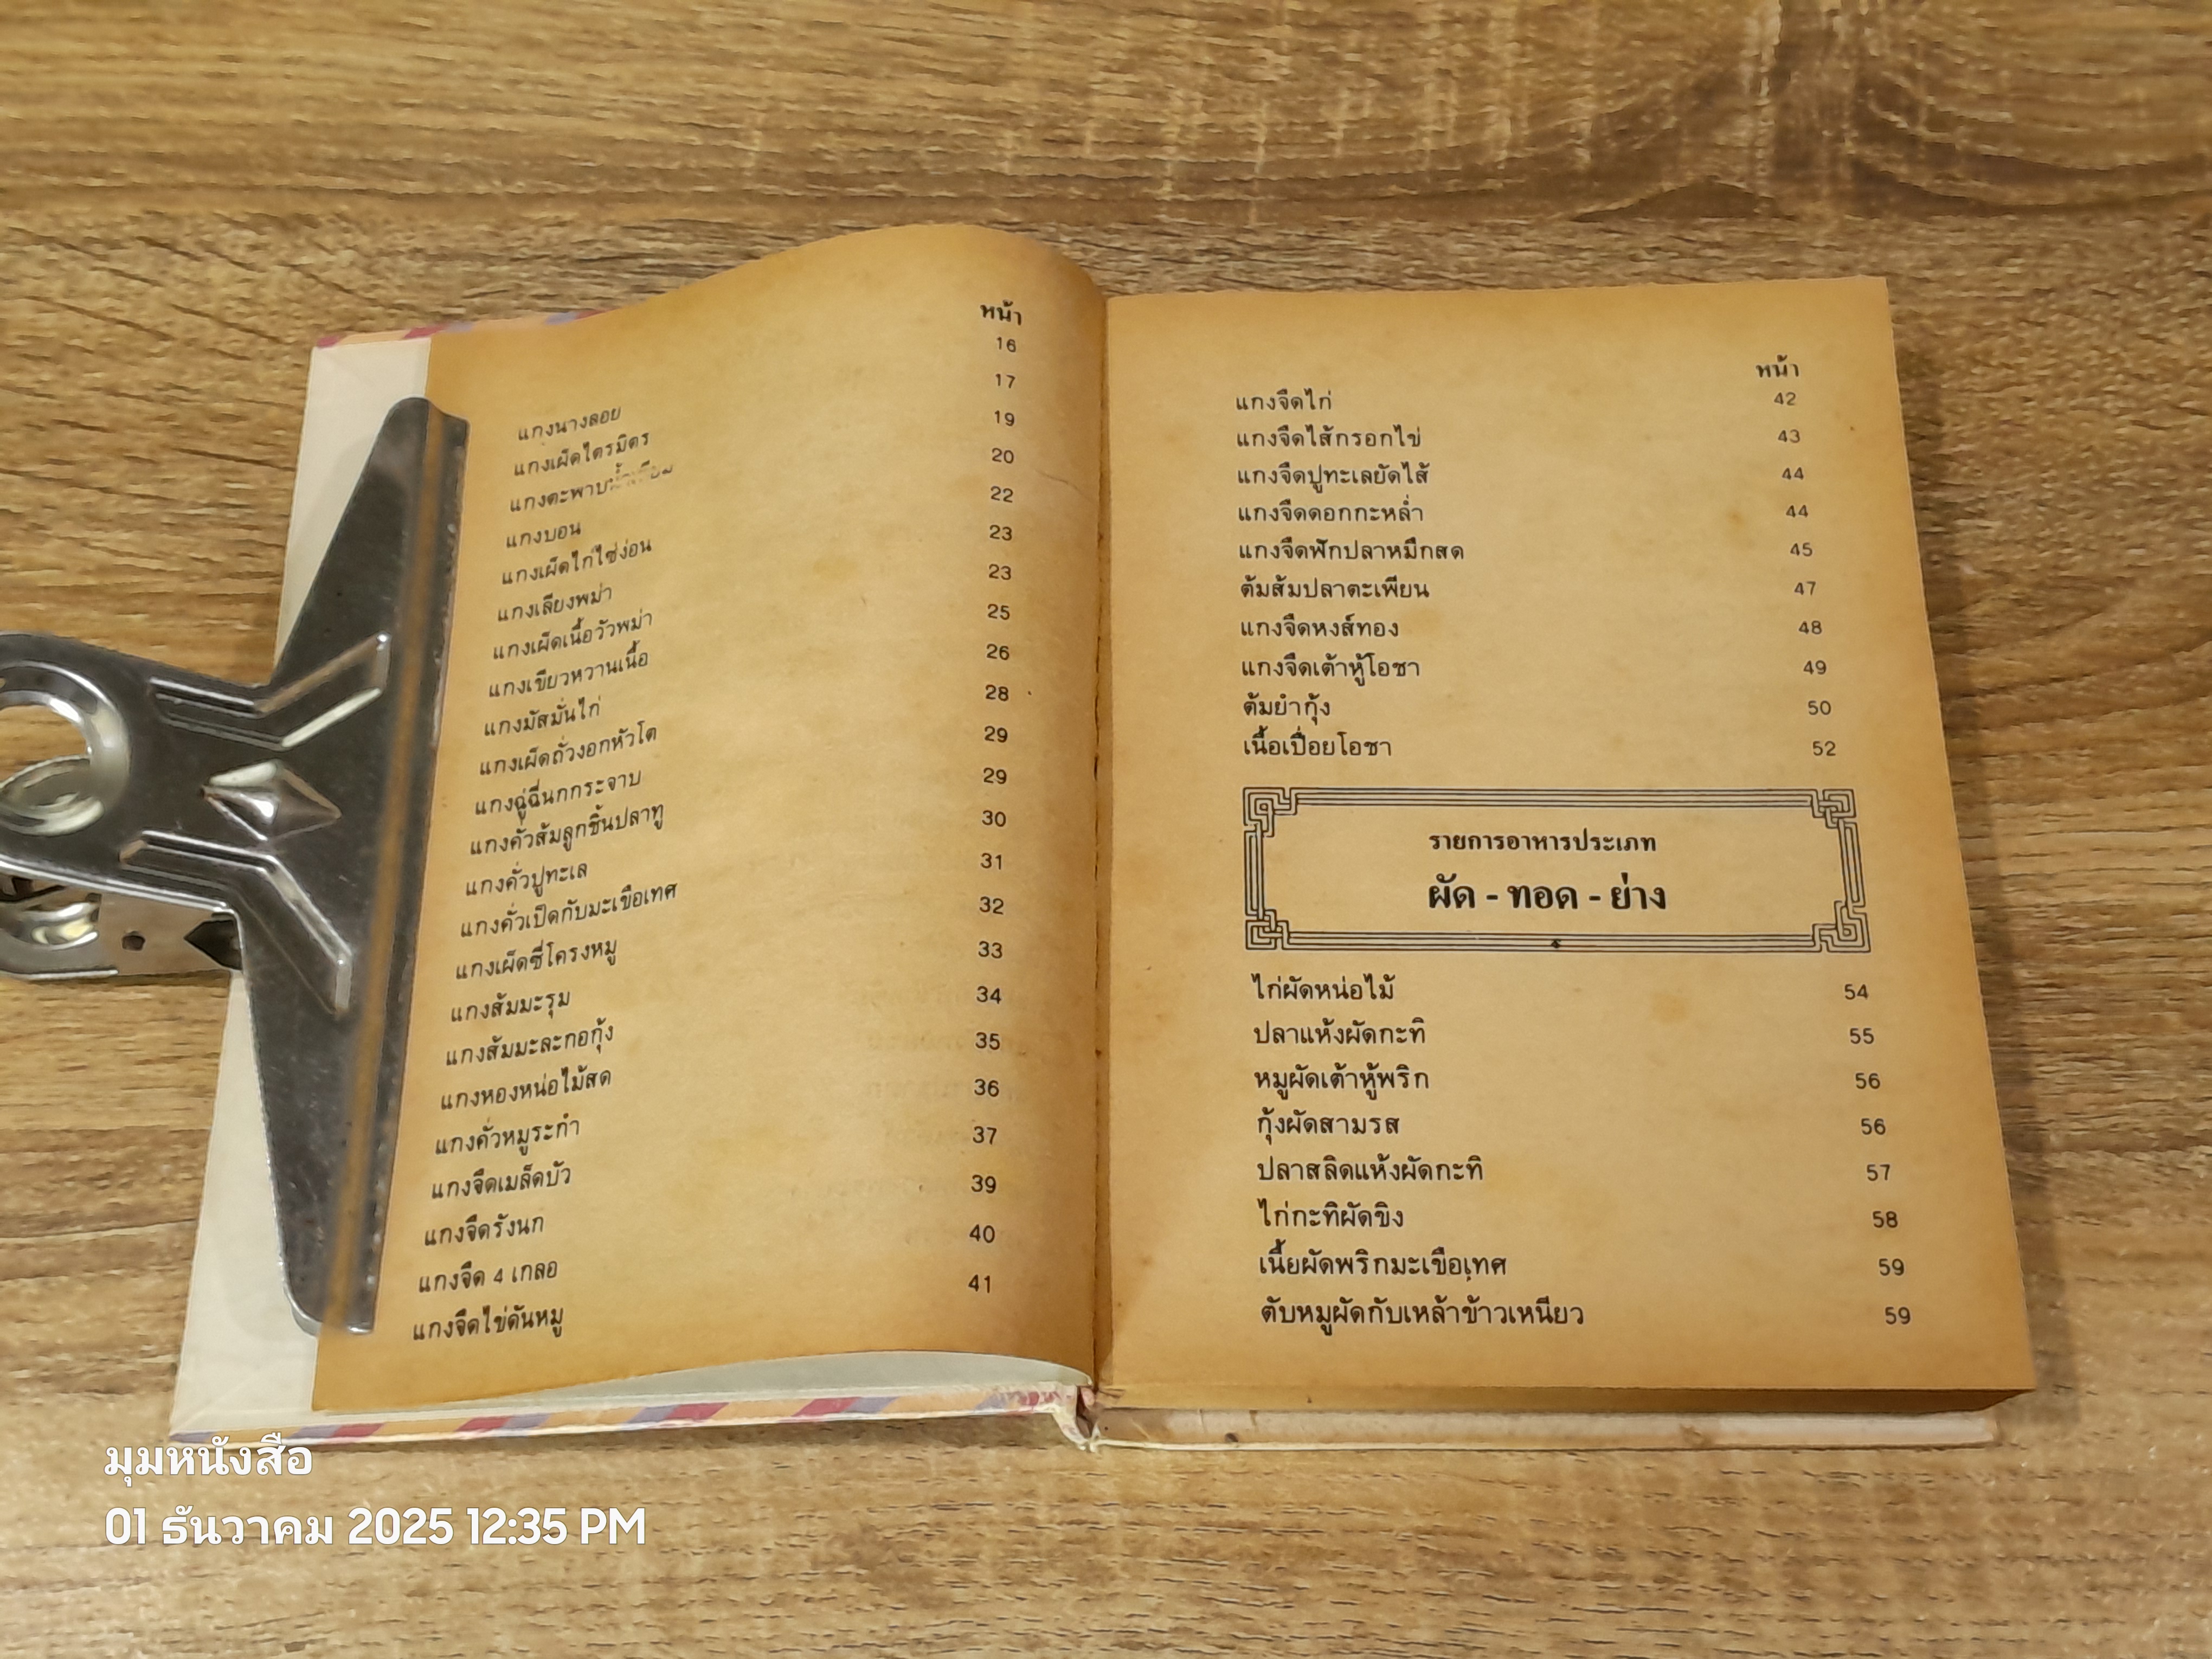 หน้า
แกงนางลอย 16
แกงเผ็ดไตรมิตร 17
แกงตะพาบน้ำเทียม 19
แกงบอน 20
แกงเผ็ดไก่ไซ่ง่อน 22
แกงเลียงพม่า 23
แกงเผ็ดเนื้อวัวพม่า 23
แกงเขียวหวานเนื้อ 25
แกงมัสมั่นไก่ 26
แกงเผ็ดถั่วงอกหัวโต 28
แกงฉู่ฉี่นกกระจาบ 29
แกงคั่วส้มลูกชิ้นปลาทู 29
แกงคั่วปูทะเล 30
แกงคั่วเป็ดกับมะเขือเทศ 31
แกงเผ็ดซี่โครงหมู 32
แกงส้มมะรุม 33
แกงส้มมะละกอกุ้ง 34
แกงหองหน่อไม้สด 35
แกงคั่วหมูระกำ 36
แกงจืดเมล็ดบัว 37
แกงจืดรังนก 39
แกงจืด 4 เกลอ 40
แกงจืดไข่ดันหมู 41
หน้า
แกงจืดไก่ 42
แกงจืดไส้กรอกไข่ 43
แกงจืดปูทะเลยัดไส้ 44
แกงจืดดอกกะหล่ำ 44
แกงจืดฟักปลาหมึกสด 45
ต้มส้มปลาตะเพียน 47
แกงจืดหงส์ทอง 48
แกงจืดเต้าหู้โอชา 49
ต้มยำกุ้ง 50
เนื้อเปื่อยโอชา 52
รายการอาหารประเภท
ผัด - ทอด - ย่าง
ไก่ผัดหน่อไม้ 54
ปลาแห้งผัดกะทิ 55
หมูผัดเต้าหู้พริก 56
กุ้งผัดสามรส 56
ปลาสลิดแห้งผัดกะทิ 57
ไก่กะทิผัดขิง 58
เนี้ยผัดพริกมะเขือเทศ 59
ตับหมูผัดกับเหล้าข้าวเหนียว 59
มุมหนังสือ
01 ธันวาคม 2025 12:35 PM